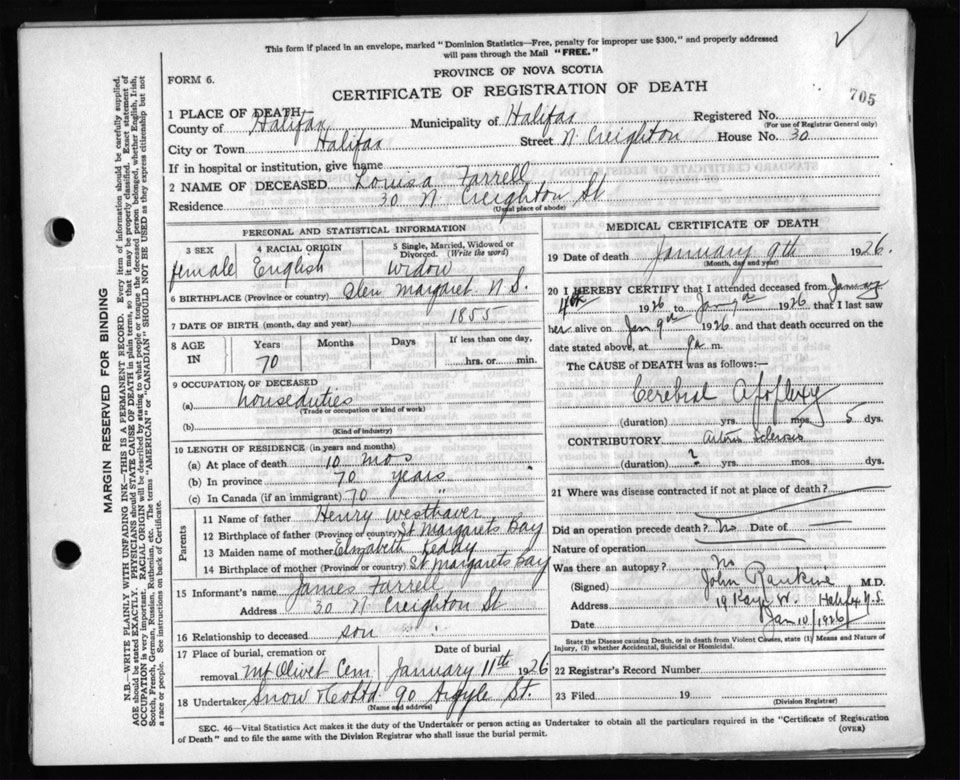 This form if placed in an envelope, marked "Dominion Statistics—Free, penalty for improper use $300," and properly addressed
will pass through the Mail "FREE."
PROVINCE OF NOVA SCOTIA
FORM 6.
CERTIFICATE OF REGISTRATION OF DEATH
705
1 PLACE OF DEATH—
County of Halifax Municipality of Halifax Registered No.
(For use of Registrar General only)
City or Town Halifax Street N. Creighton House No. 30
If in hospital or institution, give name
2 NAME OF DECEASED Louisa Farrell
Residence 30 N. Creighton St
(Usual place of abode)
PERSONAL AND STATISTICAL INFORMATION
3 SEX female
4 RACIAL ORIGIN English
5 Single, Married, Widowed or Divorced. (Write the word) widow
6 BIRTHPLACE (Province or country) Glen Margaret N.S.
7 DATE OF BIRTH (month, day and year) 1855
8 AGE IN
Years Months Days If less than one day,
70 hrs. or min.
9 OCCUPATION OF DECEASED
(a) houseduties
(Trade or occupation or kind of work)
(b)
(Kind of industry)
10 LENGTH OF RESIDENCE (in years and months)
(a) At place of death 10 mos
(b) In province 70 years
(c) In Canada (if an immigrant) 70 "
Parents
11 Name of father Henry Westhaver
12 Birthplace of father (Province or country) St Margarets Bay
13 Maiden name of mother Elizabeth Keddy
14 Birthplace of mother (Province or country) St Margarets Bay
15 Informant's name James Farrell
Address 30 N Creighton St
16 Relationship to deceased son
17 Place of burial, cremation or removal Mt Olivet Cem
Date of burial January 11th 1926
18 Undertaker Snow & Co Ltd 90 Argyle St.
(Name and address)
MEDICAL CERTIFICATE OF DEATH
19 Date of death January 9th 1926.
(Month, day and year)
20 I HEREBY CERTIFY that I attended deceased from January
4th 1926 to Jan 9th 1926 that I last saw
her alive on Jan. 9th 1926 and that death occurred on the
date stated above, at 9a m.
The CAUSE OF DEATH was as follows:—
Cerebral Apoplexy
(duration) yrs. mos. 5 dys.
CONTRIBUTORY Arterio Sclerosis
(duration) ? yrs. mos. dys.
21 Where was disease contracted if not at place of death?
Did an operation precede death? No Date of —
Nature of operation
Was there an autopsy? no
(Signed) John Rankine M.D.
Address Halifax N.S.
Date Jan 10/1926
State the Disease causing Death, or in death from Violent Causes, state (1) Means and Nature of
Injury, (2) whether Accidental, Suicidal or Homicidal.
22 Registrar's Record Number
23 Filed 19
(Division Registrar)
SEC. 46—Vital Statistics Act makes it the duty of the Undertaker or person acting as Undertaker to obtain all the particulars required in the "Certificate of Registration
of Death" and to file the same with the Division Registrar who shall issue the burial permit.
(OVER)
MARGIN RESERVED FOR BINDING
N.B.—WRITE PLAINLY WITH UNFADING INK—THIS IS A PERMANENT RECORD. Every item of information should be carefully supplied.
AGE should be stated EXACTLY. PHYSICIANS should STATE CAUSE OF DEATH in plain terms, so that it may be properly classified. Exact statement of
OCCUPATION is very important. RACIAL ORIGIN will be described by stating to what people or tongue the deceased person belonged, whether English, Irish,
Scotch, French, German, Russian, Ruthenian, etc. The terms "AMERICAN" or "CANADIAN" SHOULD NOT BE USED as they express citizenship but not
a race or people. See instructions on back of Certificate.